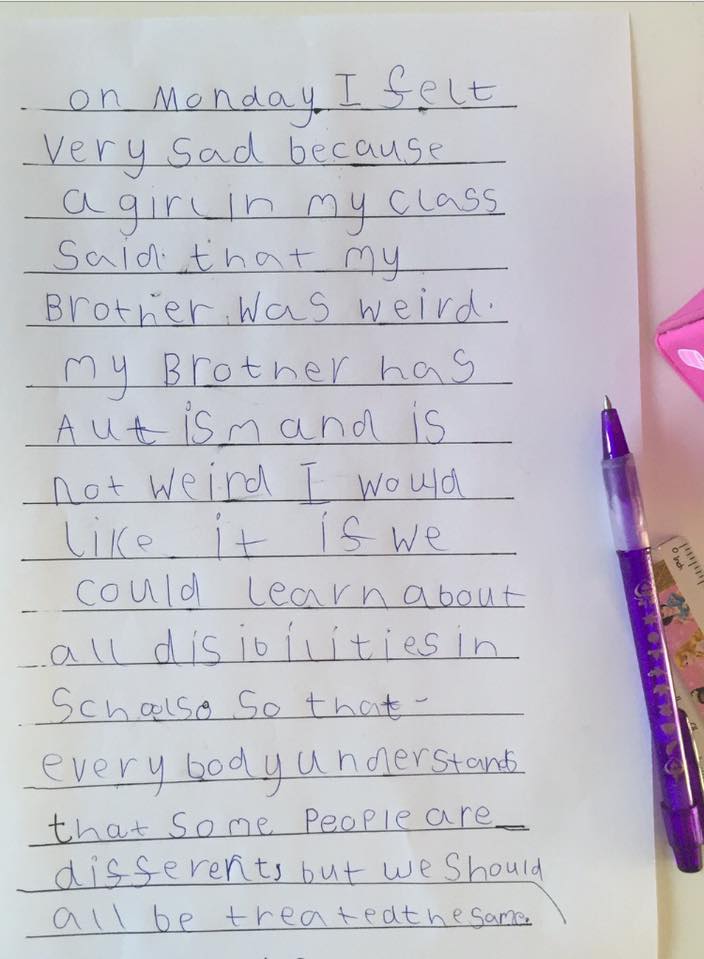 on Monday I felt
Very Sad because
a girl in my class
Said that my
Brother Was weird.
my Brother has
Autism and is
not weird I would
like it if we
could learn about
all disibilities in
Schools So that
every body understands
that some people are
differents but we Should
all be treated the same.
0 inch